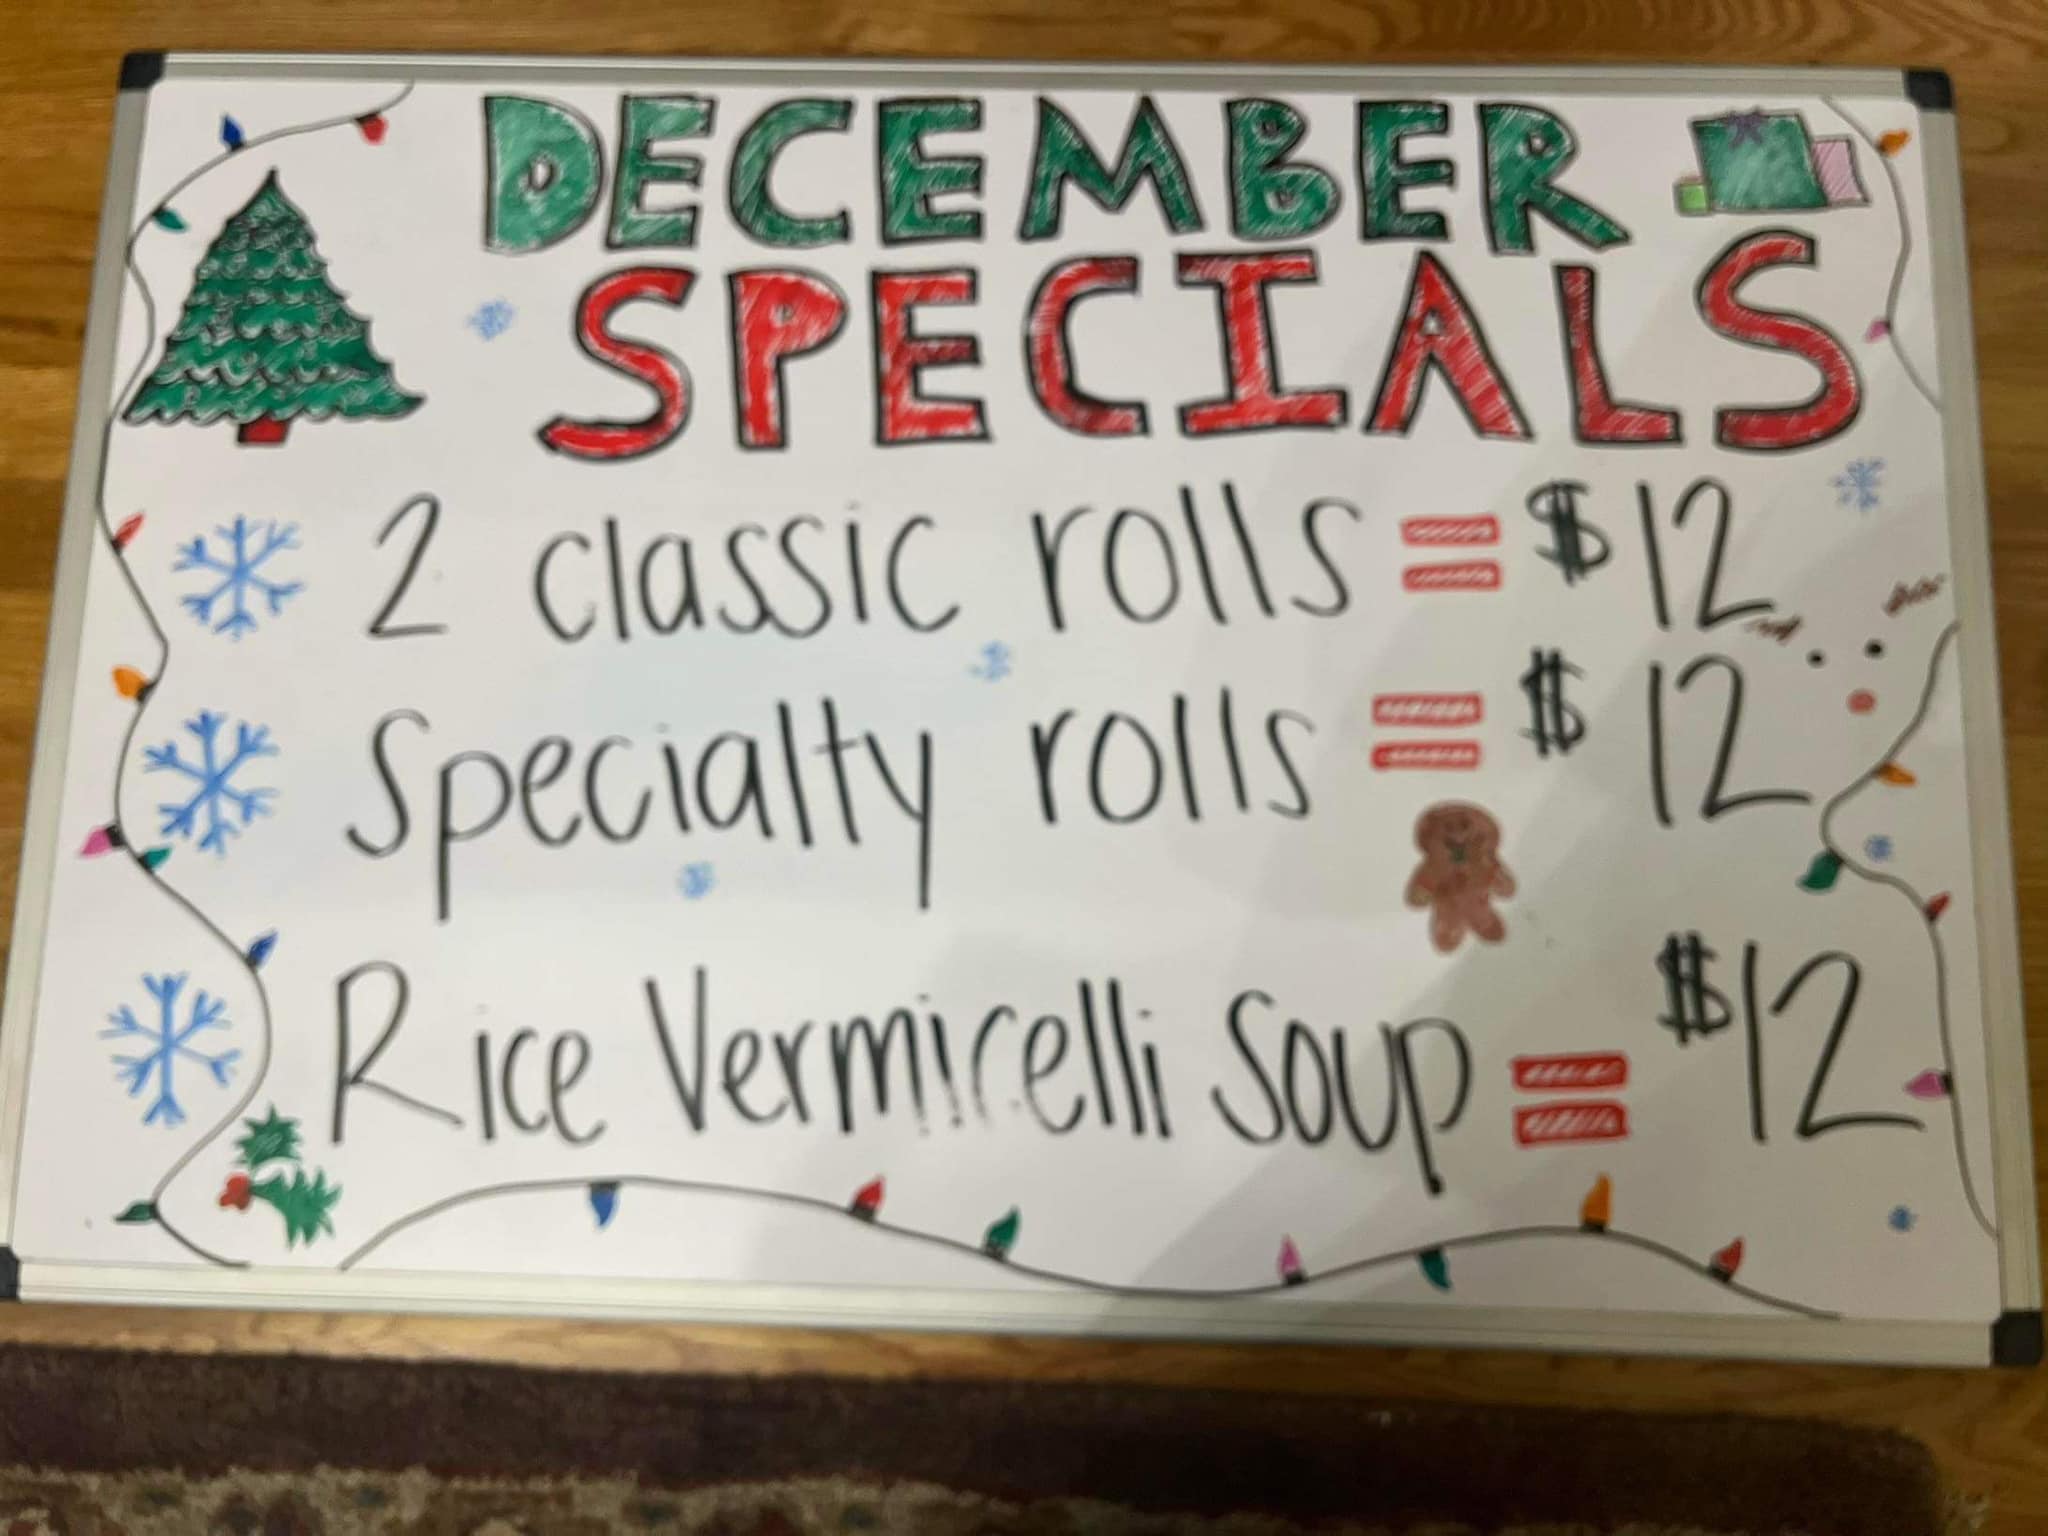 DECEMBER
SPECIALS
2 classic rolls = $12
Specialty rolls = $12
Rice Vermicelli Soup = $12